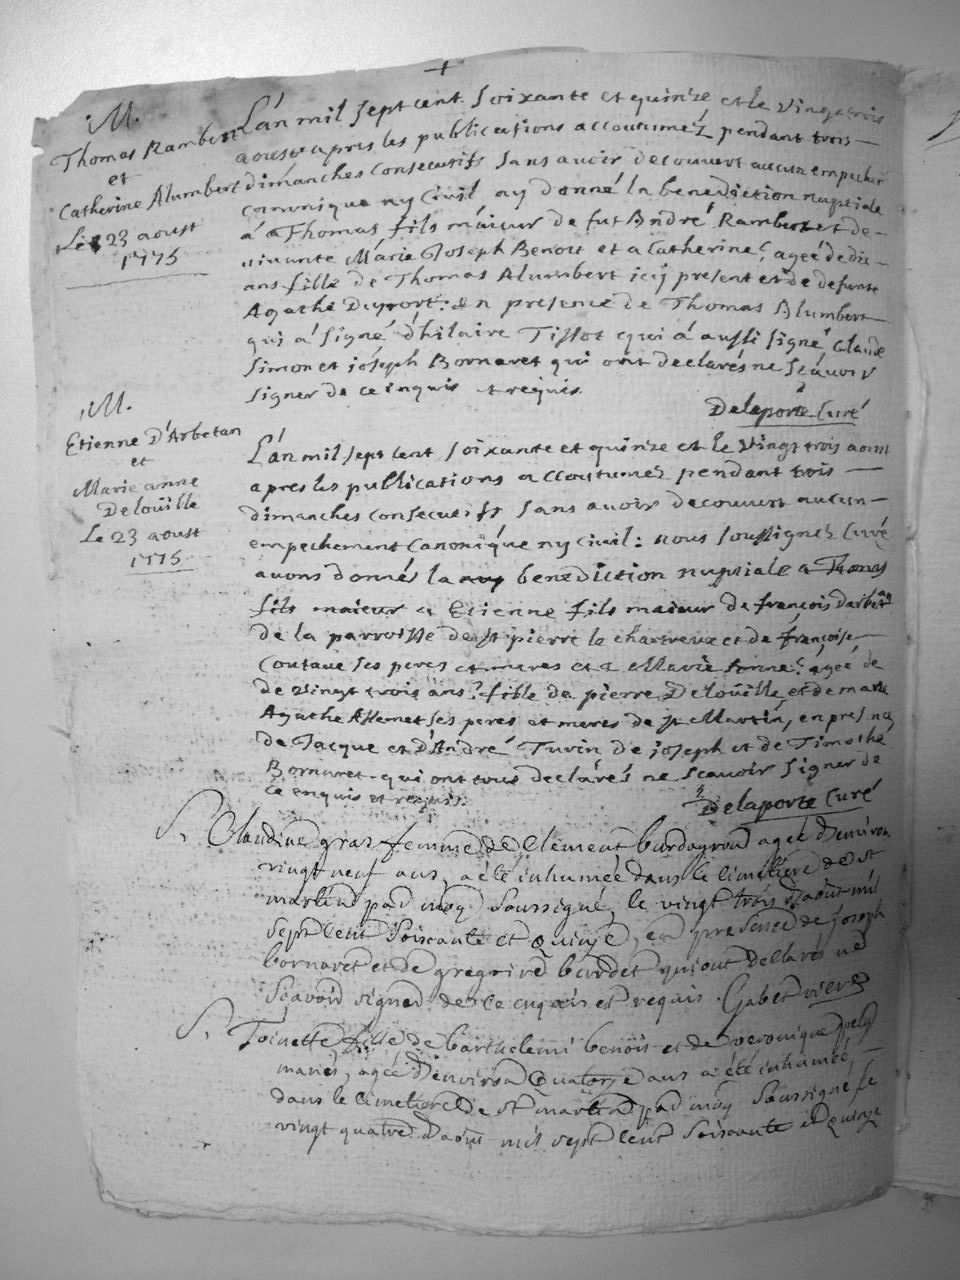 +
M.
Thomas Rambert
et
Catherine Alumbert
Le 23 aoust
1775
L'án mil sept cent soixante et quinze et le vingt trois
aoust apres les publications accoutumés pendant trois —
dimanches consecutifs sans auoir decouvert aucun empechem
canonique ny civil ay donné la benediction nuptiale
á Thomas fils máieur de fut André Rambert et de —
uiuante Márie Joseph Benoit et a Catherine, agée de dix —
ans fille de Thomas Alumbert icy present et de defunte
Agathe Duport: en presence de Thomas Alumbert —
qui á signé d'hilaire Tissot qui á aussi signé Claude
Simon et joseph Bornaret qui ont declarés ne scáuoir
signer de ce enquis et requis.
Delaporte Curé
M.
Etienne D'Arbetan
et
Marie anne
Deloüille
Le 23 aoust
1775
L'án mil sept cent soixante et quinze et le vingt trois aoust
apres les publications accoutumez pendant trois —
dimanches consecutifs sans auoir decouvert aucun —
empechement canonique ny civil: nous soussignez Curé
auons donnés la benediction nuptiale a Thomas
fils maieur a Etienne fils maieur de françois Darbetan
de la parroisse de st pierre le chartreux et de françoise —
Coutaue ses peres et meres et a Marie Anne agée de
de vingt trois áns fille de pierre Deloüille et de marie
Agathe Allemet ses peres et meres de st Martin, en presence
de Jacque et D'André Tuvin de joseph et de Timothé
Bornaret qui ont tous declárés ne scauoir signer de
ce enquis et requis.
Delaporte Curé
S. Claudine gras femme de Clement burdayron agée d'environ
vingt neuf ans, a été inhumée dans le cimetiere de st
martin par moy soussigné, le vingt trois d'aout mil
sept cent soixante et quinze, en presence de joseph
bornaret et de gregoire burdet qui ont declarés ne
scavoir signer de ce enquis et requis. Gabet vic
S. Toinette fille de barthelemi benoit et de veronique
mariés, agée d'environ quatorze ans a été inhumée —
dans le cimetiere de st martin par moy soussigné le
vingt quatre d'aout mil sept cent soixante et quinze